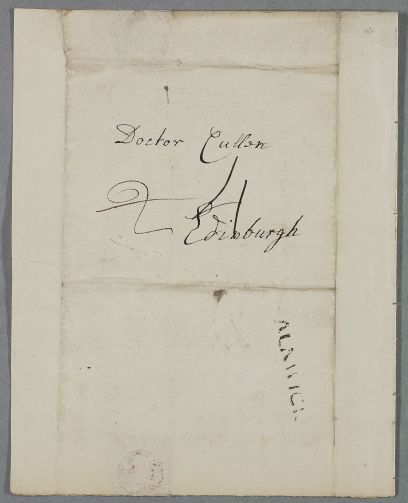 Doctor Cullen
Edinburgh
ALNWICK